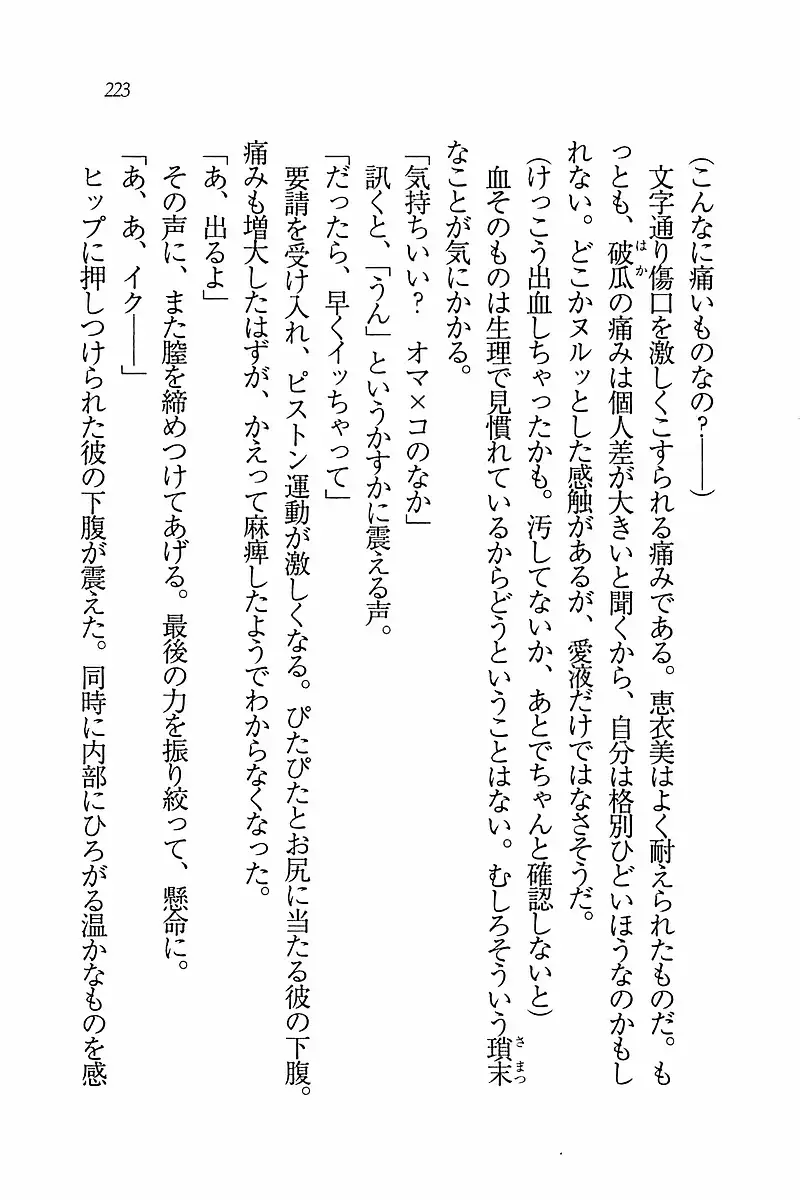 223
(こんなに痛いものなの?――)
文字通り傷口を激しくこすられる痛みである。恵衣美はよく耐えられたものだ。も
っとも、破瓜の痛みは個人差が大きいと聞くから、自分は格別ひどいほうなのかもし
れない。どこかヌルッとした感触があるが、愛液だけではなさそうだ。
(けっこう出血しちゃったかも。汚してないか、あとでちゃんと確認しないと)
血そのものは生理で見慣れているからどうということはない。むしろそういう瑣末
なことが気にかかる。
「気持ちいい? オマ×コのなか」
訊くと、「うん」というかすかに震える声。
「だったら、早くイッちゃって」
要請を受け入れ、ピストン運動が激しくなる。ぴたぴたとお尻に当たる彼の下腹。
痛みも増大したはずが、かえって麻痺したようでわからなくなった。
「あ、出るよ」
その声に、また膣を締めつけてあげる。最後の力を振り絞って、懸命に。
「あ、あ、イク――」
ヒップに押しつけられた彼の下腹が震えた。同時に内部にひろがる温かなものを感